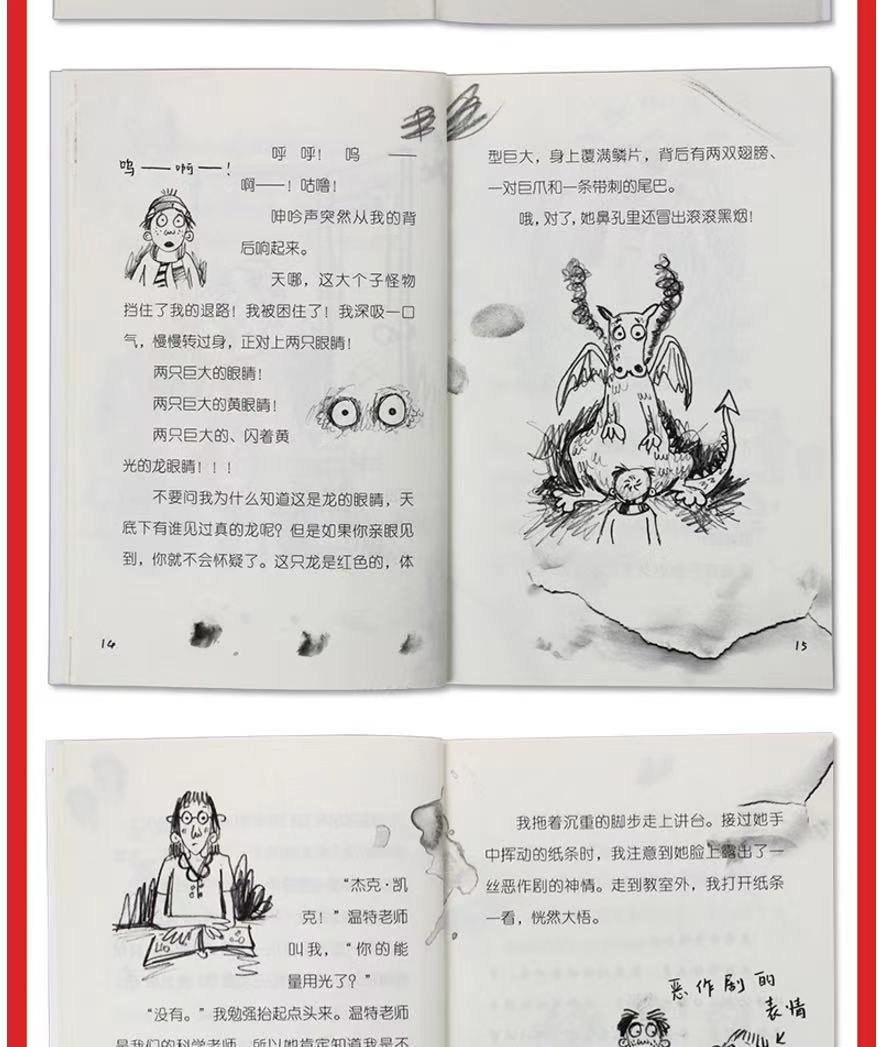 呜——啊——！
呼 呼！ 呜 ——
啊——！咕噜！
呻吟声突然从我的背
后响起来。
天哪，这大个子怪物
挡住了我的退路！我被困住了！我深吸一口
气，慢慢转过身，正对上两只眼睛！
两只巨大的眼睛！
两只巨大的黄眼睛！
两只巨大的、闪着黄
光的龙眼睛！！！
不要问我为什么知道这是龙的眼睛，天
底下有谁见过真的龙呢？但是如果你亲眼见
到，你就不会怀疑了。这只龙是红色的，体
14
型巨大，身上覆满鳞片，背后有两双翅膀、
一对巨爪和一条带刺的尾巴。
哦，对了，她鼻孔里还冒出滚滚黑烟！
15
“杰克·凯
克！”温特老师
叫我，“你的能
量用光了？”
“没有。”我勉强抬起点头来。温特老师
是我们的科学老师，所以她肯定知道我是不
我拖着沉重的脚步走上讲台。接过她手
中挥动的纸条时，我注意到她脸上露出了一
丝恶作剧的神情。走到教室外，我打开纸条
一看，恍然大悟。
恶作剧的
表情